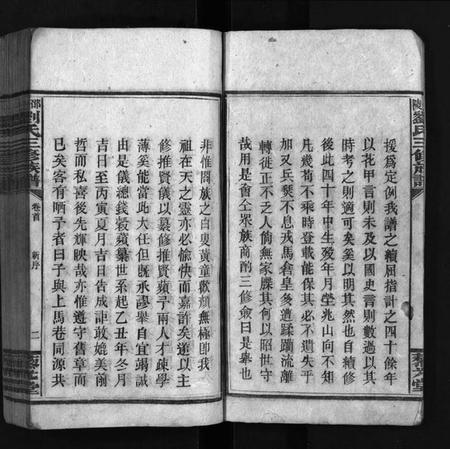 援為定例我譜之續屈指計之四十餘年
以花甲言則未及以國史言則數過以其
時考之則適可矣奚以明其然也自續修
後此四十年中生歿年月塋兆山向不知
凡幾苟不乘時登載能保其必不遺失乎
加又兵燹不息戎馬倉皇多遭蹂躪流離
轉徙正不乏人倘無家牒其何以昭世守
哉用是會仝眾族商酌三修僉曰是舉也
劉氏三修族譜
卷首
新序
二
非惟闔族之白叟黃童歡顏無極即我
祖在天之靈亦必愉快而嘉許矣遂以主
修推賢儀以纂修推賢蘋予兩人才疎學
薄奚能當此大任但既承謬舉自宜竭誠
由是儀總錢穀蘋纂世系起乙丑年冬月
吉日至丙寅夏月吉日告成詎敢媲美前
哲而私喜後先輝映哉亦惟遵守舊章而
已矣客有哂予者曰子與上馬巷同源共